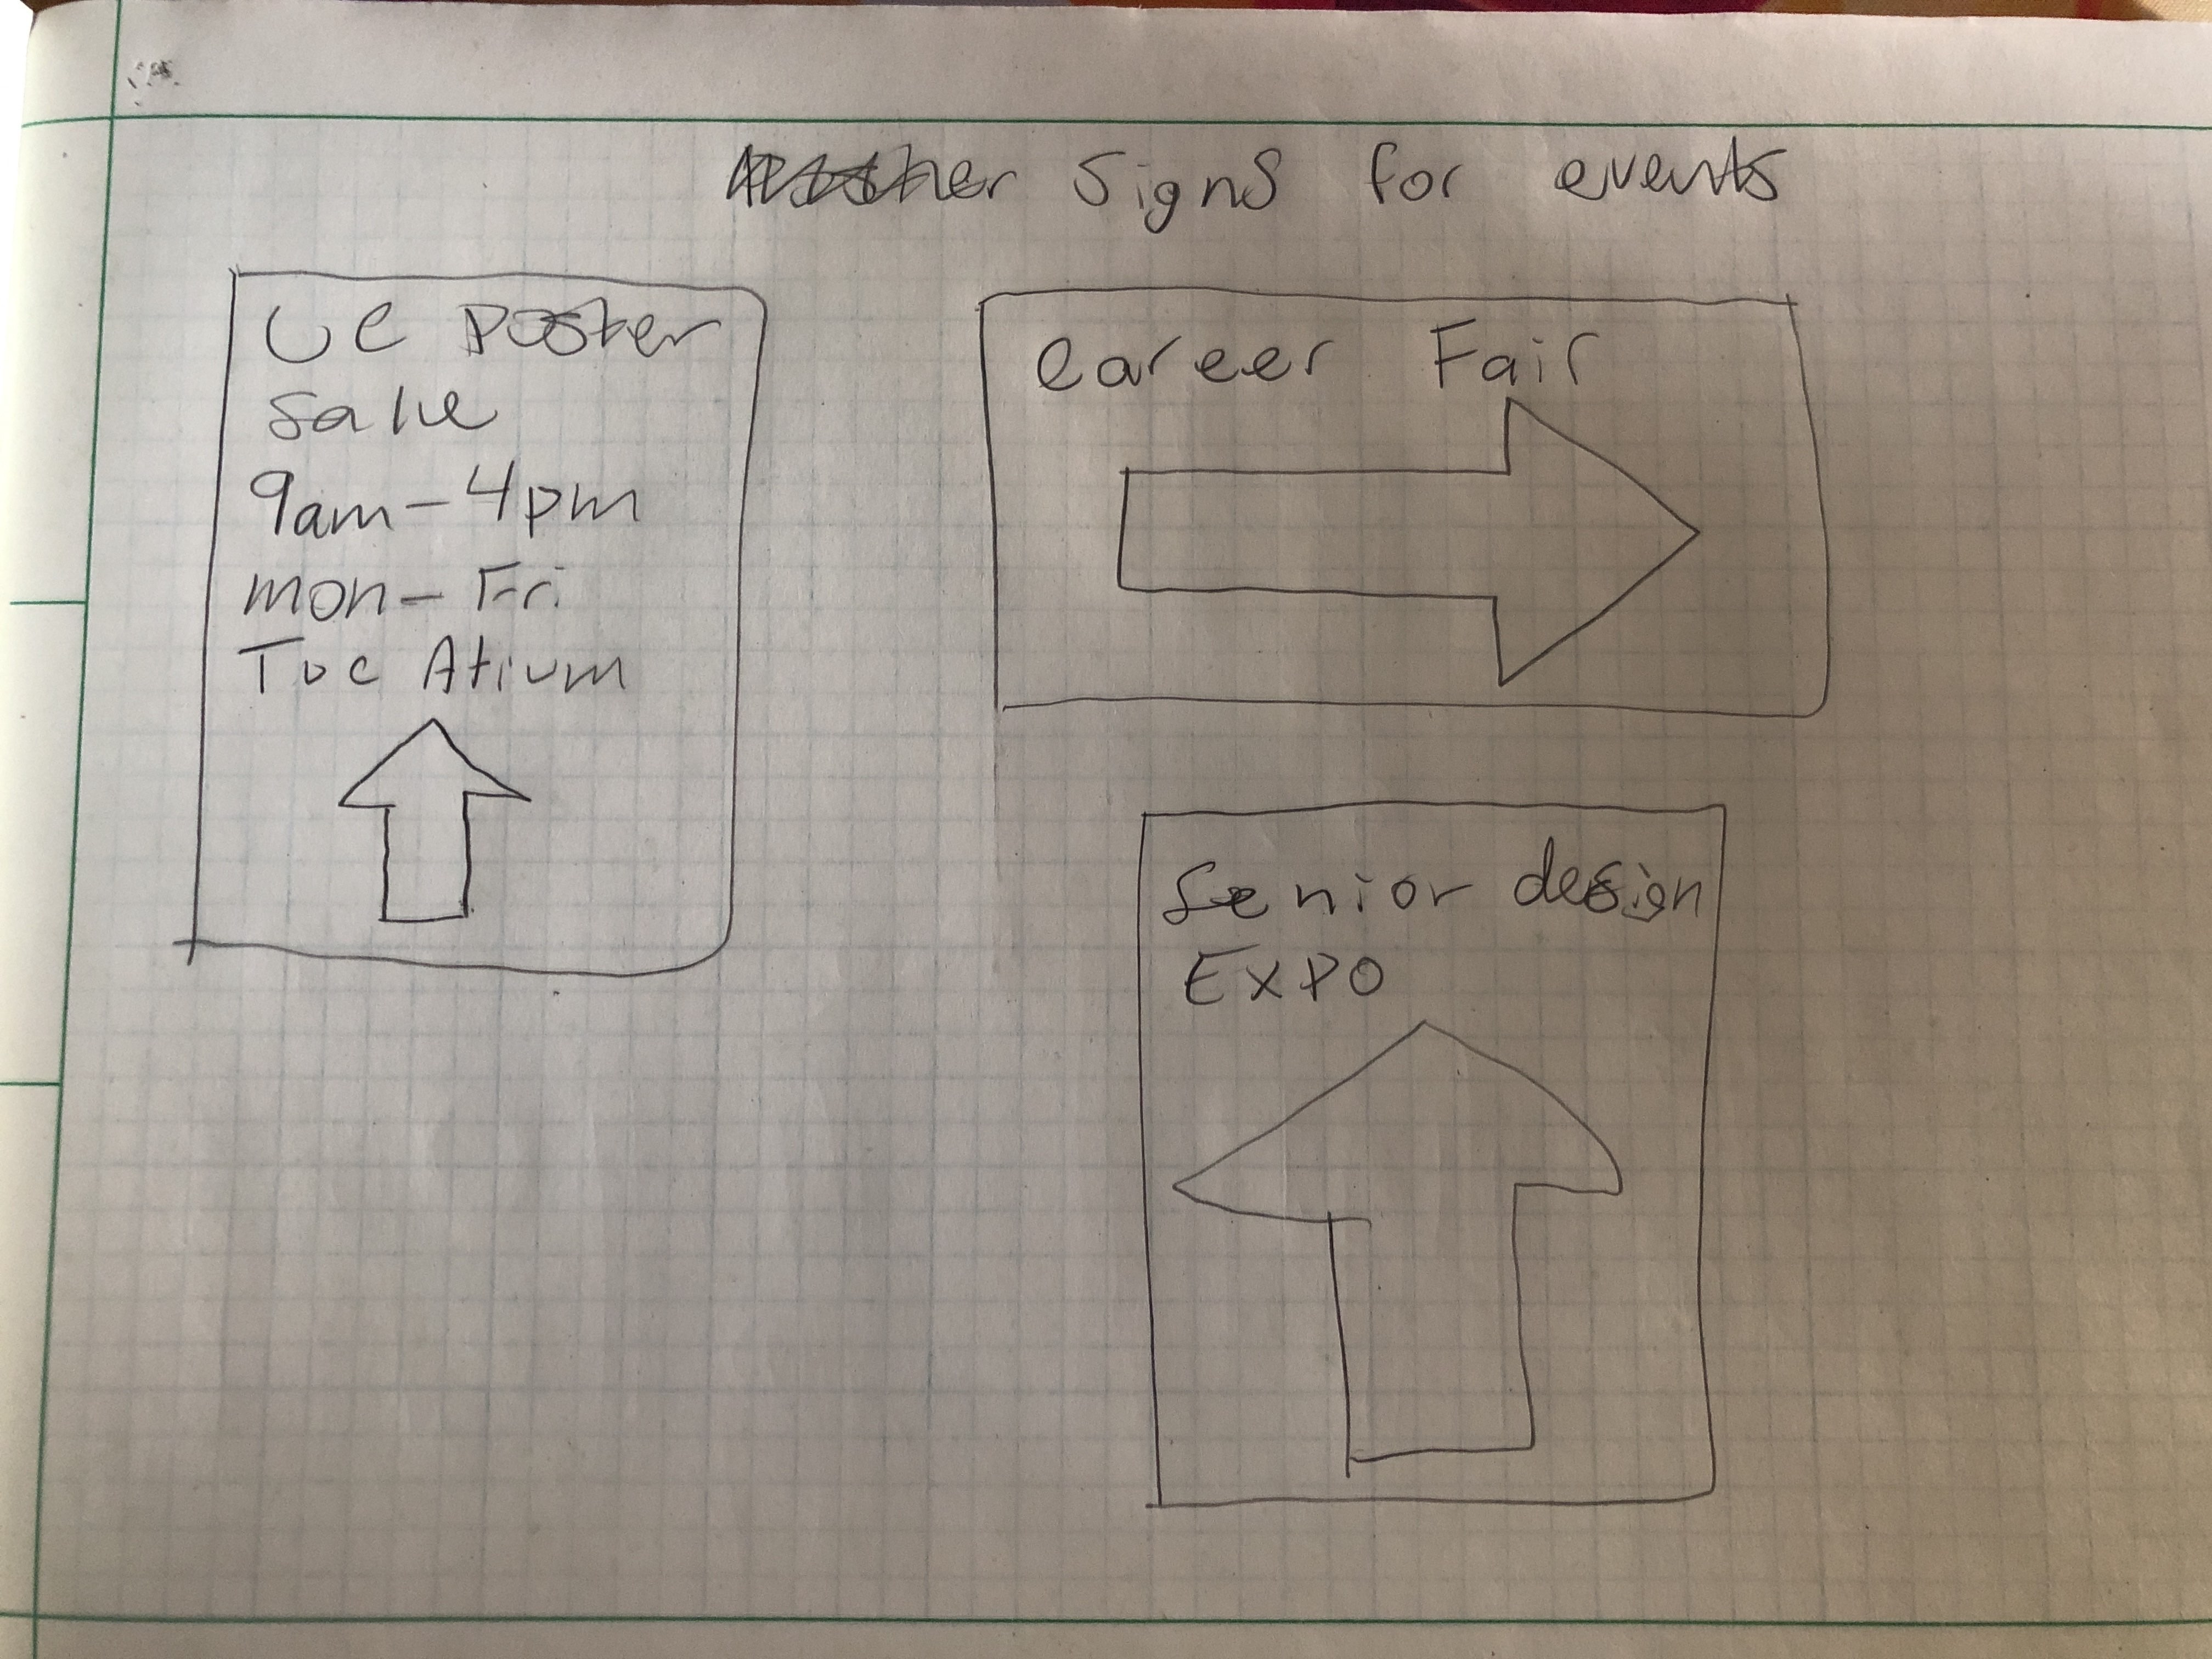 Signs for events
UC Poster
Sale
9am-4pm
mon-Fri
Tuc Atium
Career Fair
Senior design
Expo